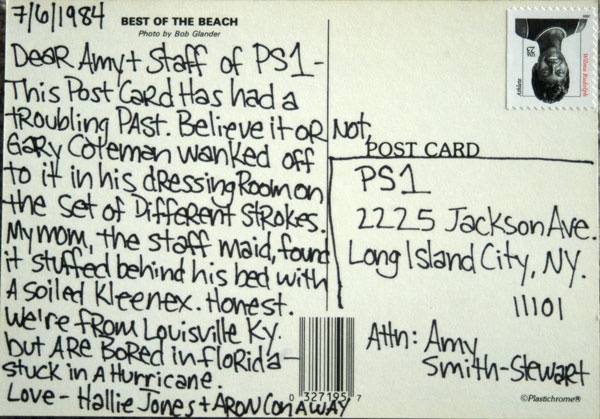 7/6/1984
BEST OF THE BEACH
Photo by Bob Glander
DEAR Amy + Staff of PS1 -
This Post Card Has had a
troubling PAST. Believe it or Not,
Gary Coleman wanked off
to it in his dressing Room on
the set of Different Strokes.
My mom, the staff maid, found
it stuffed behind his bed with
A soiled Kleenex. Honest.
We're from Louisville Ky.
but ARE BoRed in floRida -
stuck in A Hurricane.
Love - Hallie Jones + ARON ConAWAY
Wilma Rudolph
Athlete
23
USA
POST CARD
PS1
2225 Jackson Ave.
Long Island City, NY.
11101
Attn: Amy
Smith-Stewart
0 327195 7
©Plastichrome®